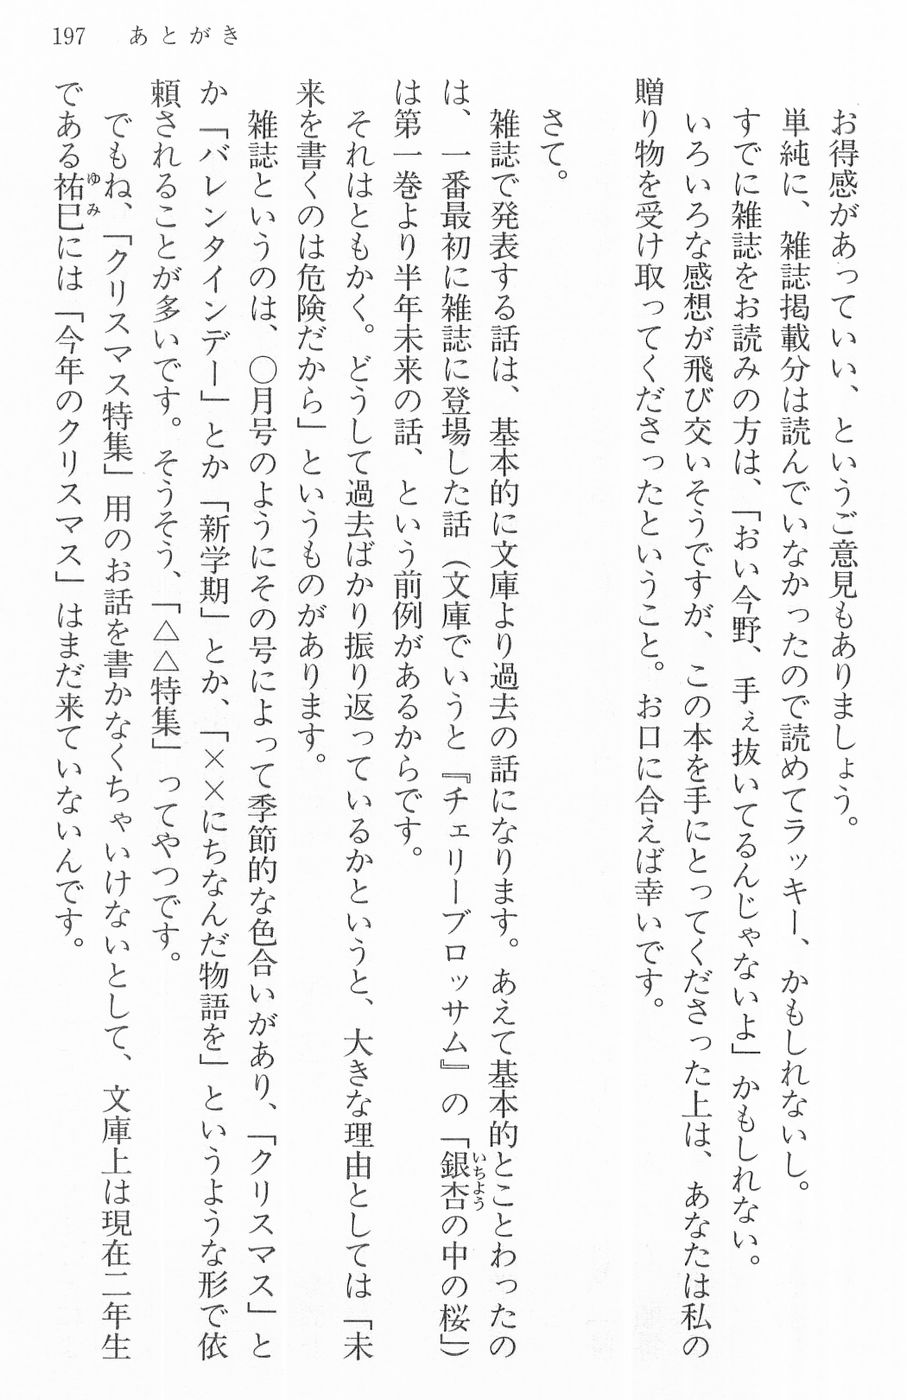 197　あとがき
お得感があっていい、というご意見もありましょう。
単純に、雑誌掲載分は読んでいなかったので読めてラッキー、かもしれないし。
すでに雑誌をお読みの方は、「おい今野、手ぇ抜いてるんじゃないよ」かもしれない。
いろいろな感想が飛び交いそうですが、この本を手にとってくださった上は、あなたは私の
贈り物を受け取ってくださったということ。お口に合えば幸いです。
さて。
雑誌で発表する話は、基本的に文庫より過去の話になります。あえて基本的とことわったの
は、一番最初に雑誌に登場した話（文庫でいうと『チェリーブロッサム』の「銀杏いちようの中の桜」）
は第一巻より半年未来の話、という前例があるからです。
それはともかく。どうして過去ばかり振り返っているかというと、大きな理由としては「未
来を書くのは危険だから」というものがあります。
雑誌というのは、〇月号のようにその号によって季節的な色合いがあり、「クリスマス」と
か「バレンタインデー」とか「新学期」とか、「××にちなんだ物語を」というような形で依
頼されることが多いです。そうそう、「△△特集」ってやつです。
でもね、「クリスマス特集」用のお話を書かなくちゃいけないとして、文庫上は現在二年生
である祐巳ゆみには「今年のクリスマス」はまだ来ていないんです。